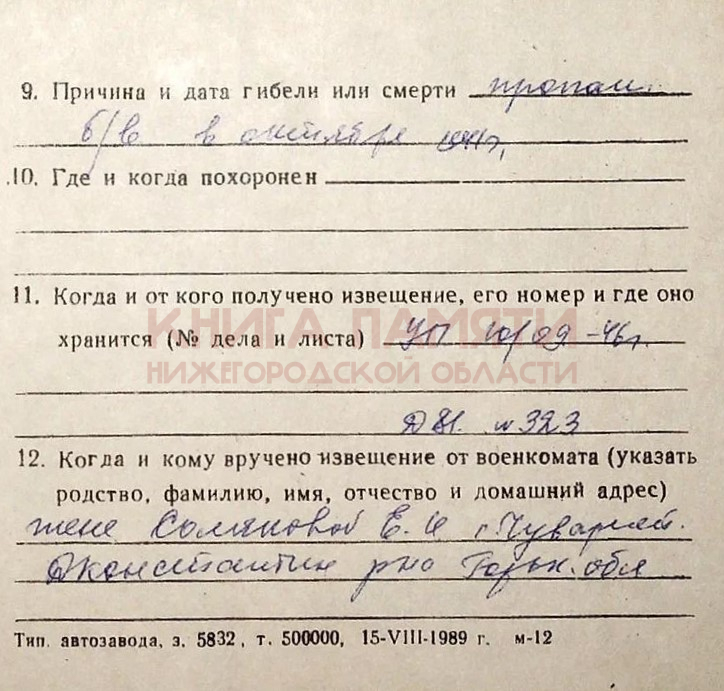 9. Причина и дата гибели или смерти пропал
б/в в октябре 1941г.
10. Где и когда похоронен
11. Когда и от кого получено извещение, его номер и где оно
КНИГА ПАМЯТИ
хранится (№ дела и листа) УП 10/09-46г.
НИЖЕГОРОДСКОЙ ОБЛАСТИ
323
12. Когда и кому вручено извещение от военкомата (указать
родство, фамилию, имя, отчество и домашний адрес)
жене Е. И
Дконстантин р-на Горьк. обл
Тип. автозавода, з. 5832, т. 500000, 15-VIII-1989 г. м-12